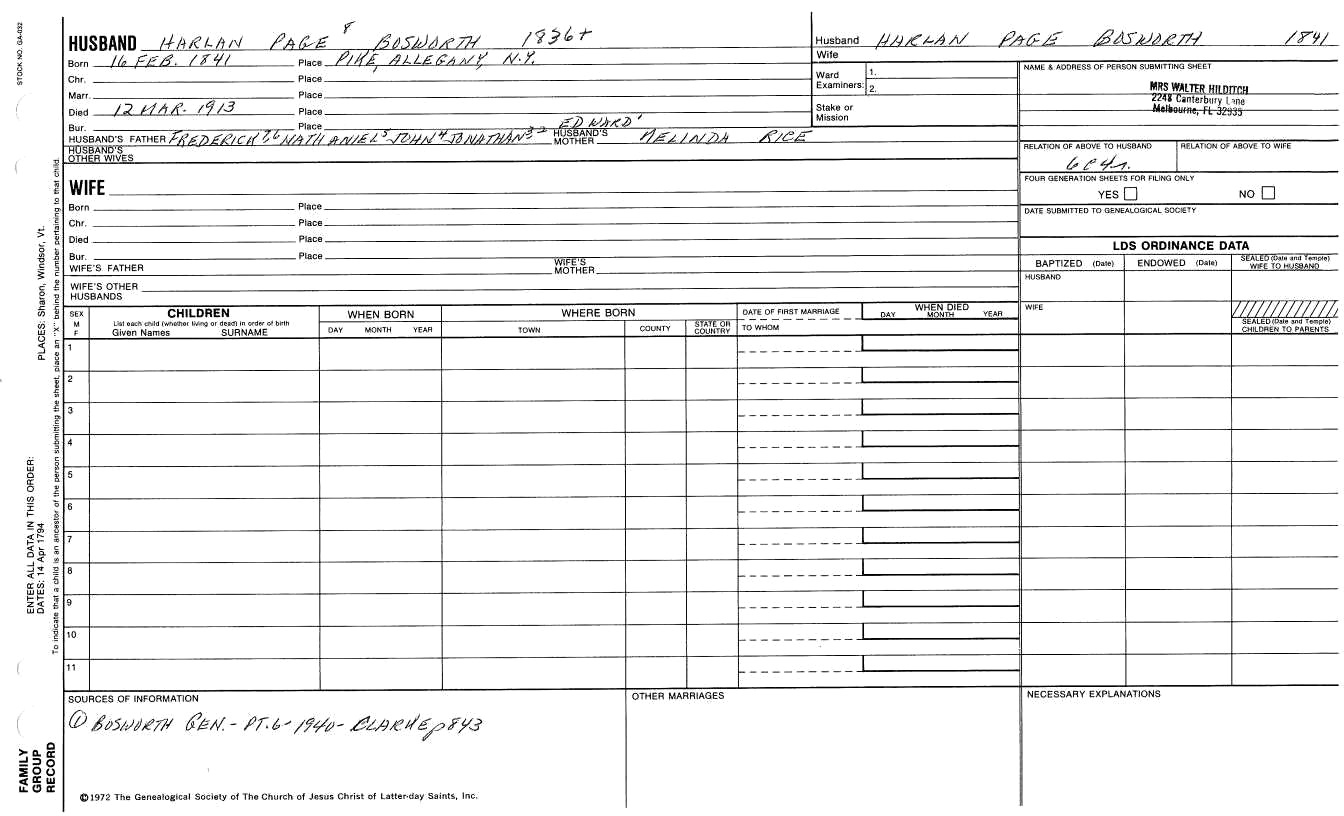 STOCK NO. GA-032
HUSBAND HARLAN PAGE 8 BOSWORTH 1836+
Born 16 FEB. 1841 Place PIKE, ALLEGANY, N.Y.
Chr. Place
Marr. Place
Died 12 MAR. 1913 Place
Bur. Place
EDWARD 1
HUSBAND'S FATHER FREDERICK 7,6 NATHANIEL 5 JOHN 4 JONATHAN 3-2 HUSBAND'S MOTHER MELINDA RICE
HUSBAND'S OTHER WIVES
Husband HARLAN PAGE BOSWORTH 1841
Wife
Ward Examiners: 1.
2.
Stake or Mission
NAME & ADDRESS OF PERSON SUBMITTING SHEET
MRS WALTER HILDITCH
2248 Canterbury Lane
Melbourne, FL 32935
RELATION OF ABOVE TO HUSBAND RELATION OF ABOVE TO WIFE
6C4r.
FOUR GENERATION SHEETS FOR FILING ONLY
YES NO
DATE SUBMITTED TO GENEALOGICAL SOCIETY
WIFE
Born Place
Chr. Place
Died Place
Bur. Place
WIFE'S FATHER WIFE'S MOTHER
WIFE'S OTHER HUSBANDS
LDS ORDINANCE DATA
BAPTIZED (Date) ENDOWED (Date) SEALED (Date and Temple) WIFE TO HUSBAND
HUSBAND
WIFE
SEALED (Date and Temple) CHILDREN TO PARENTS
SEX M F
CHILDREN
List each child (whether living or dead) in order of birth
Given Names SURNAME
WHEN BORN
DAY MONTH YEAR
WHERE BORN
TOWN COUNTY STATE OR COUNTRY
DATE OF FIRST MARRIAGE
TO WHOM
WHEN DIED
DAY MONTH YEAR
1
2
3
4
5
6
7
8
9
10
11
SOURCES OF INFORMATION
① BOSWORTH GEN. - PT. 6 - 1940 - CLARKE p 843
OTHER MARRIAGES
NECESSARY EXPLANATIONS
©1972 The Genealogical Society of The Church of Jesus Christ of Latter-day Saints, Inc.
PLACES: Sharon, Windsor, Vt.
ENTER ALL DATA IN THIS ORDER:
DATES: 14 Apr 1794
To indicate that a child is an ancestor of the person submitting the sheet, place an "X" behind the number pertaining to that child.
FAMILY
GROUP
RECORD